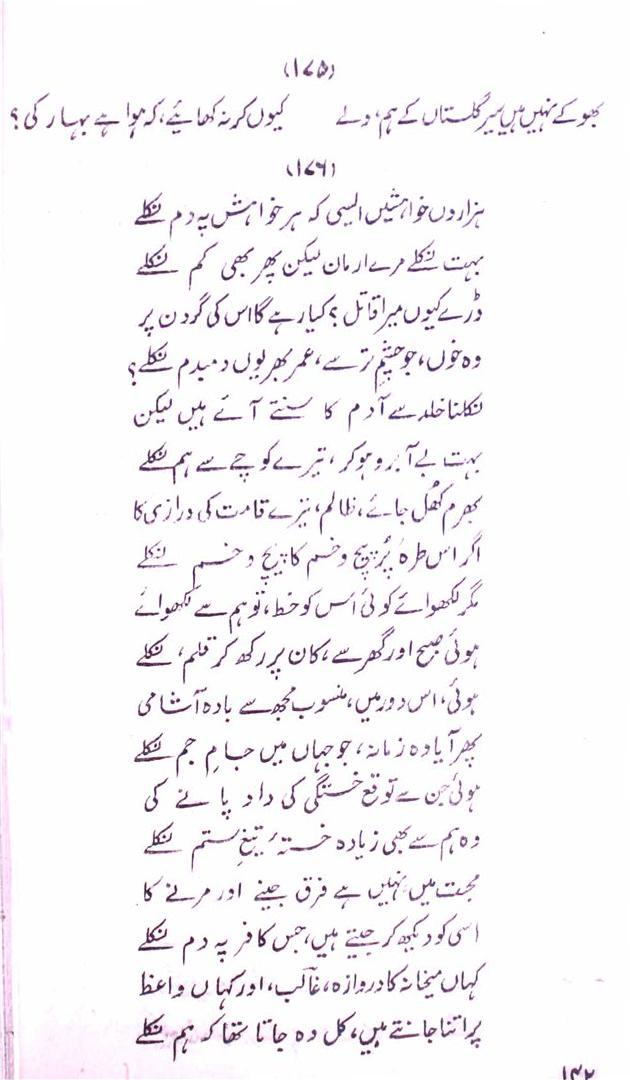 (۱۷۵)
بھوکے نہیں ہیں سیر گلستاں کے ہم، ولے کیوں کر نہ کھائیے، کہ ہوا ہے بہار کی؟
(۱۷۶)
ہزاروں خواہشیں ایسی کہ ہر خواہش پہ دم نکلے
بہت نکلے مرے ارمان لیکن پھر بھی کم نکلے
ڈرے کیوں میرا قاتل؟ کیا رہے گا اس کی گردن پر
وہ خوں، جو چشمِ تر سے، عمر بھر یوں دمبدم نکلے؟
نکلنا خلد سے آدم کا سنتے آئے ہیں لیکن
بہت بے آبرو ہوکر، تیرے کوچے سے ہم نکلے
بھرم کھُل جائے، ظالم، تیرے قامت کی درازی کا
اگر اس طرۂ پُرپیچ و خم کا پیچ و خم نکلے
مگر لکھوائے کوئی اُس کو خط، تو ہم سے لکھوائے
ہوئی صبح اور گھر سے، کان پر رکھ کر قلم، نکلے
ہوئی، اس دور میں، منسوب مجھ سے بادہ آشامی
پھر آیا وہ زمانہ، جو جہاں میں جامِ جم نکلے
ہوئی جن سے توقع خستگی کی داد پانے کی
وہ ہم سے بھی زیادہ خستۂ تیغِ ستم نکلے
محبت میں نہیں ہے فرق جینے اور مرنے کا
اسی کو دیکھ کر جیتے ہیں، جس کافر پہ دم نکلے
کہاں میخانہ کا دروازہ، غالب، اور کہاں واعظ
پر اتنا جانتے ہیں، کل وہ جاتا تھا کہ ہم نکلے
۱۴۲